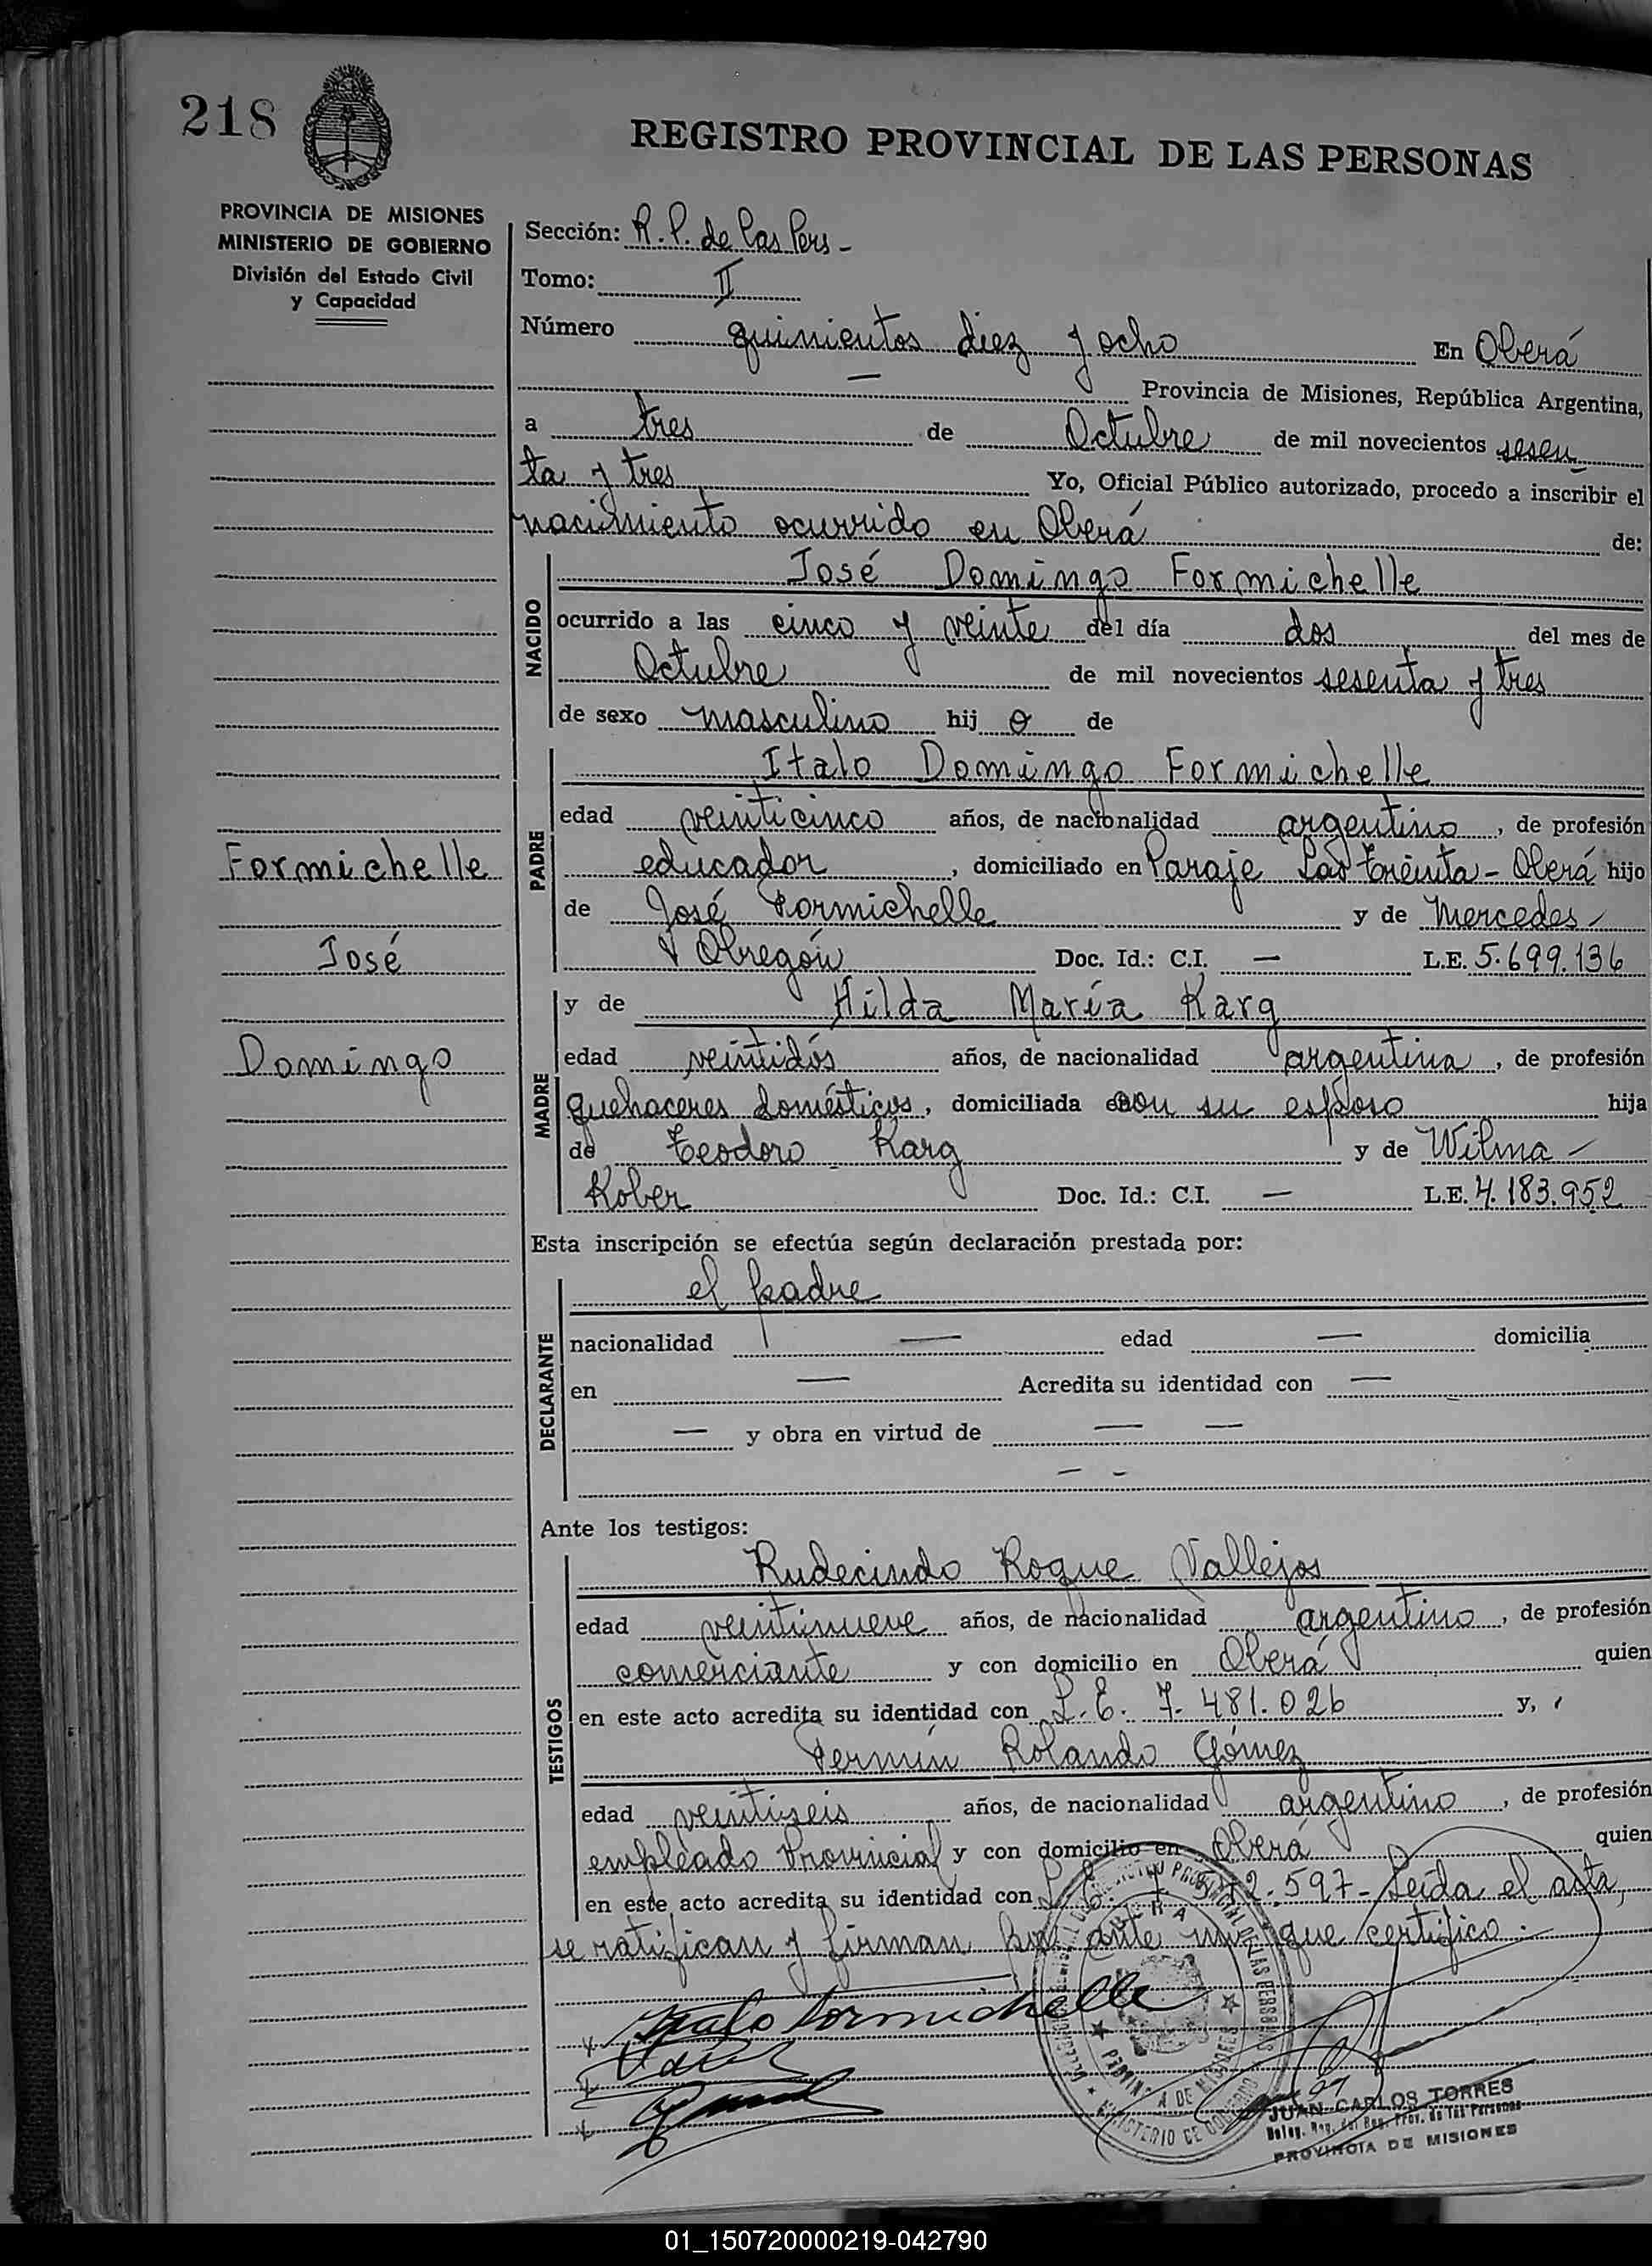 218
REGISTRO PROVINCIAL DE LAS PERSONAS
PROVINCIA DE MISIONES
MINISTERIO DE GOBIERNO
División del Estado Civil
y Capacidad
Sección: R.P. de las Pers -
Tomo: II
Número quinientos diez y ocho En Oberá
— Provincia de Misiones, República Argentina,
a tres de Octubre de mil novecientos sesen
ta y tres Yo, Oficial Público autorizado, procedo a inscribir el
nacimiento ocurrido en Oberá de:
NACIDO
José Domingo Formichelle
ocurrido a las cinco y veinte del día dos del mes de
Octubre de mil novecientos sesenta y tres
de sexo masculino hij o de
PADRE
Italo Domingo Formichelle
edad veinticinco años, de nacionalidad argentino, de profesión
educador, domiciliado en Paraje - Oberá hijo
de José Formichelle y de Mercedes
Obregón Doc. Id.: C.I. — L.E. 5.699.136
Formichelle
José
Domingo
MADRE
y de Hilda María Karg
edad veintidós años, de nacionalidad argentina, de profesión
quehaceres domésticos, domiciliada con su esposo hija
de Teodoro Karg y de Wilma -
Kober Doc. Id.: C.I. — L.E. 4.183.952
Esta inscripción se efectúa según declaración prestada por:
DECLARANTE
el padre
nacionalidad — edad — domicilia
en — Acredita su identidad con —
— y obra en virtud de — —
— -
Ante los testigos:
TESTIGOS
Rudecindo Roque Vallejos
edad veintinueve años, de nacionalidad argentino, de profesión
comerciante y con domicilio en Oberá quien
en este acto acredita su identidad con L.E. 7.481.026 y,
Fermín Rolando Gómez
edad veintiseis años, de nacionalidad argentino, de profesión
empleado Provincial y con domicilio en Oberá quien
en este acto acredita su identidad con 2.597- Leída el acta,
se ratifican y firman por ante mí que certifico.
Italo Formichelle
JUAN CARLOS TORRES
Prov. de las Personas
PROVINCIA DE MISIONES
01_150720000219-042790